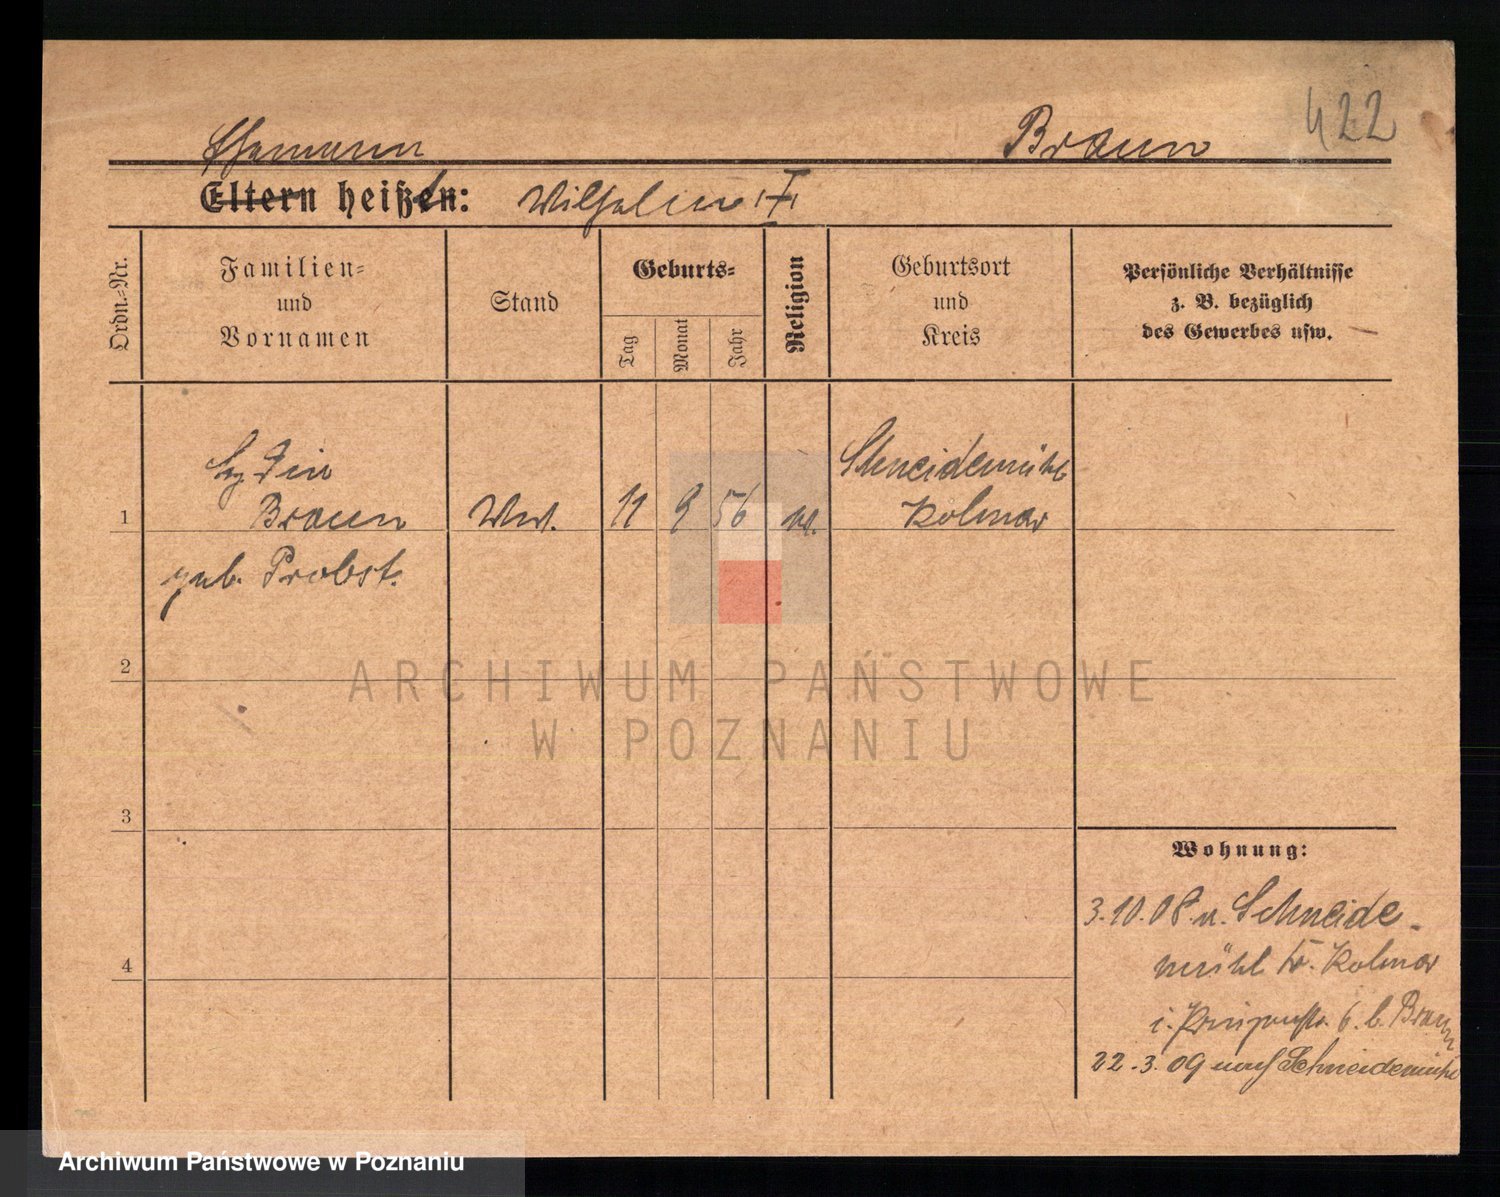 422
Ehemann Braun
Eltern heißen: Wilhelm
Ordn.-Nr.
Familien-
und
Vornamen
Stand
Geburts-
Tag
Monat
Jahr
Religion
Geburtsort
und
Kreis
Persönliche Verhältnisse
z. B. bezüglich
des Gewerbes usw.
Schneidemühl
1 Braun Ww. 11 9 56 Kolmar
geb. Probst.
2
ARCHIWUM PAŃSTWOWE
W POZNANIU
3
Wohnung:
3.10.08. v. Schneide-
4 mühl Kr. Kolmar
i. 6. b. Braun
22.3.09 nach Schneidemühl
Archiwum Państwowe w Poznaniu